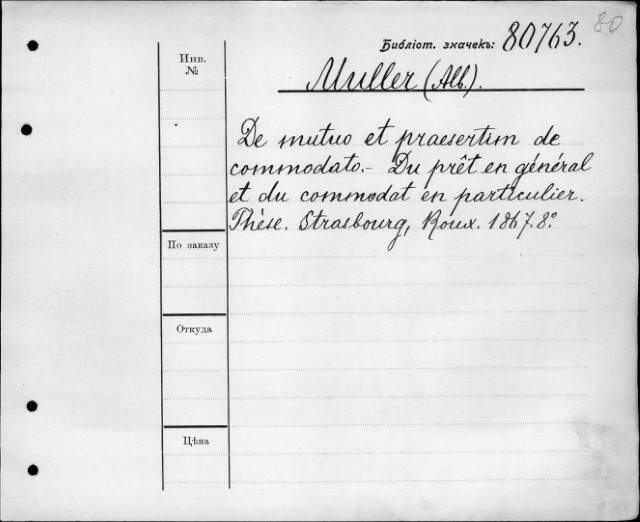 80
Библіот. значекъ: 80763.
Инв.
№
Muller (Alb.).
De mutuo et praesertim de
commodato.- Du prêt en général
et du commodat en particulier.
Thèse. Strasbourg, Roux. 1867. 8º
По заказу
Откуда
Цѣна